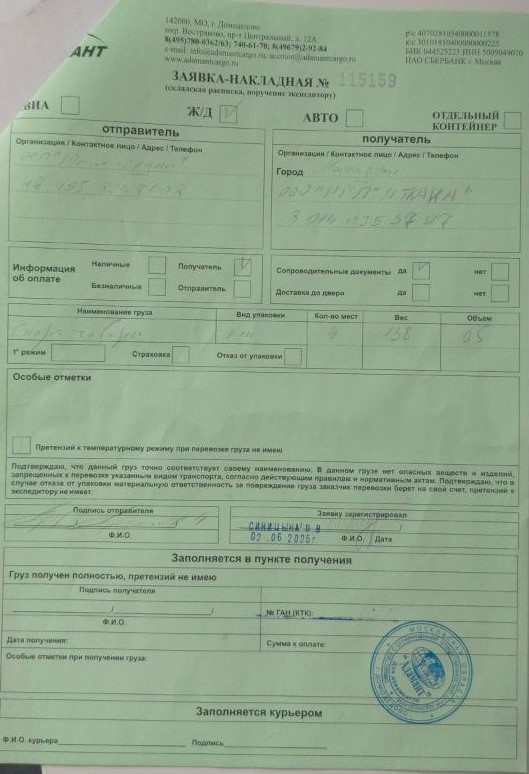 АНТ
142000, МО, г. Домодедово
мкр. Востряково, пр-т Центральный, д. 12А
8(495)780-0362/63; 740-61-70; 8(49679)2-92-84
e-mail: info@adamantcargo.ru, account@adamantcargo.ru
www.adamantcargo.ru
р/с 40702810540000011578
к/с 30101810400000000225
БИК 044525225 ИНН 5009049340
ПАО СБЕРБАНК г. Москва
ЗАЯВКА-НАКЛАДНАЯ № 115159
(складская расписка, поручение экспедитору)
ВИА
Ж/Д V
АВТО
ОТДЕЛЬНЫЙ КОНТЕЙНЕР
отправитель
Организация / Контактное лицо / Адрес / Телефон
ООО
получатель
Организация / Контактное лицо / Адрес / Телефон
Город
ООО
8 914 035 37 07
Информация об оплате
Наличные
Получатель V
Безналичные
Отправитель
Сопроводительные документы да V нет
Доставка до двери да нет
Наименование груза
Вид упаковки
Кол-во мест
Вес
Объем
Спорт товары
4
138
95
t° режим
Страховка
Отказ от упаковки
Особые отметки
Претензий к температурному режиму при перевозке груза не имею
Подтверждаю, что данный груз точно соответствует своему наименованию. В данном грузе нет опасных веществ и изделий,
запрещенных к перевозке указанным видом транспорта, согласно действующим правилам и нормативным актам. Подтверждаю, что в
случае отказа от упаковки материальную ответственность за повреждение груза заказчик перевозки берет на свой счет, претензий к
экспедитору не имеет.
Подпись отправителя
Ф.И.О.
Заявку зарегистрировал
СИНИЦЫНА О В
02 .06 2025г
Ф.И.О. Дата
Заполняется в пункте получения
Груз получен полностью, претензий не имею
Подпись получателя
Ф.И.О.
№ ГАН (КТК):
Дата получения:
Сумма к оплате:
Особые отметки при получении груза:
МОСКОВСКАЯ ОБЛАСТЬ
АДАМАНТ
Заполняется курьером
Ф.И.О. курьера
Подпись